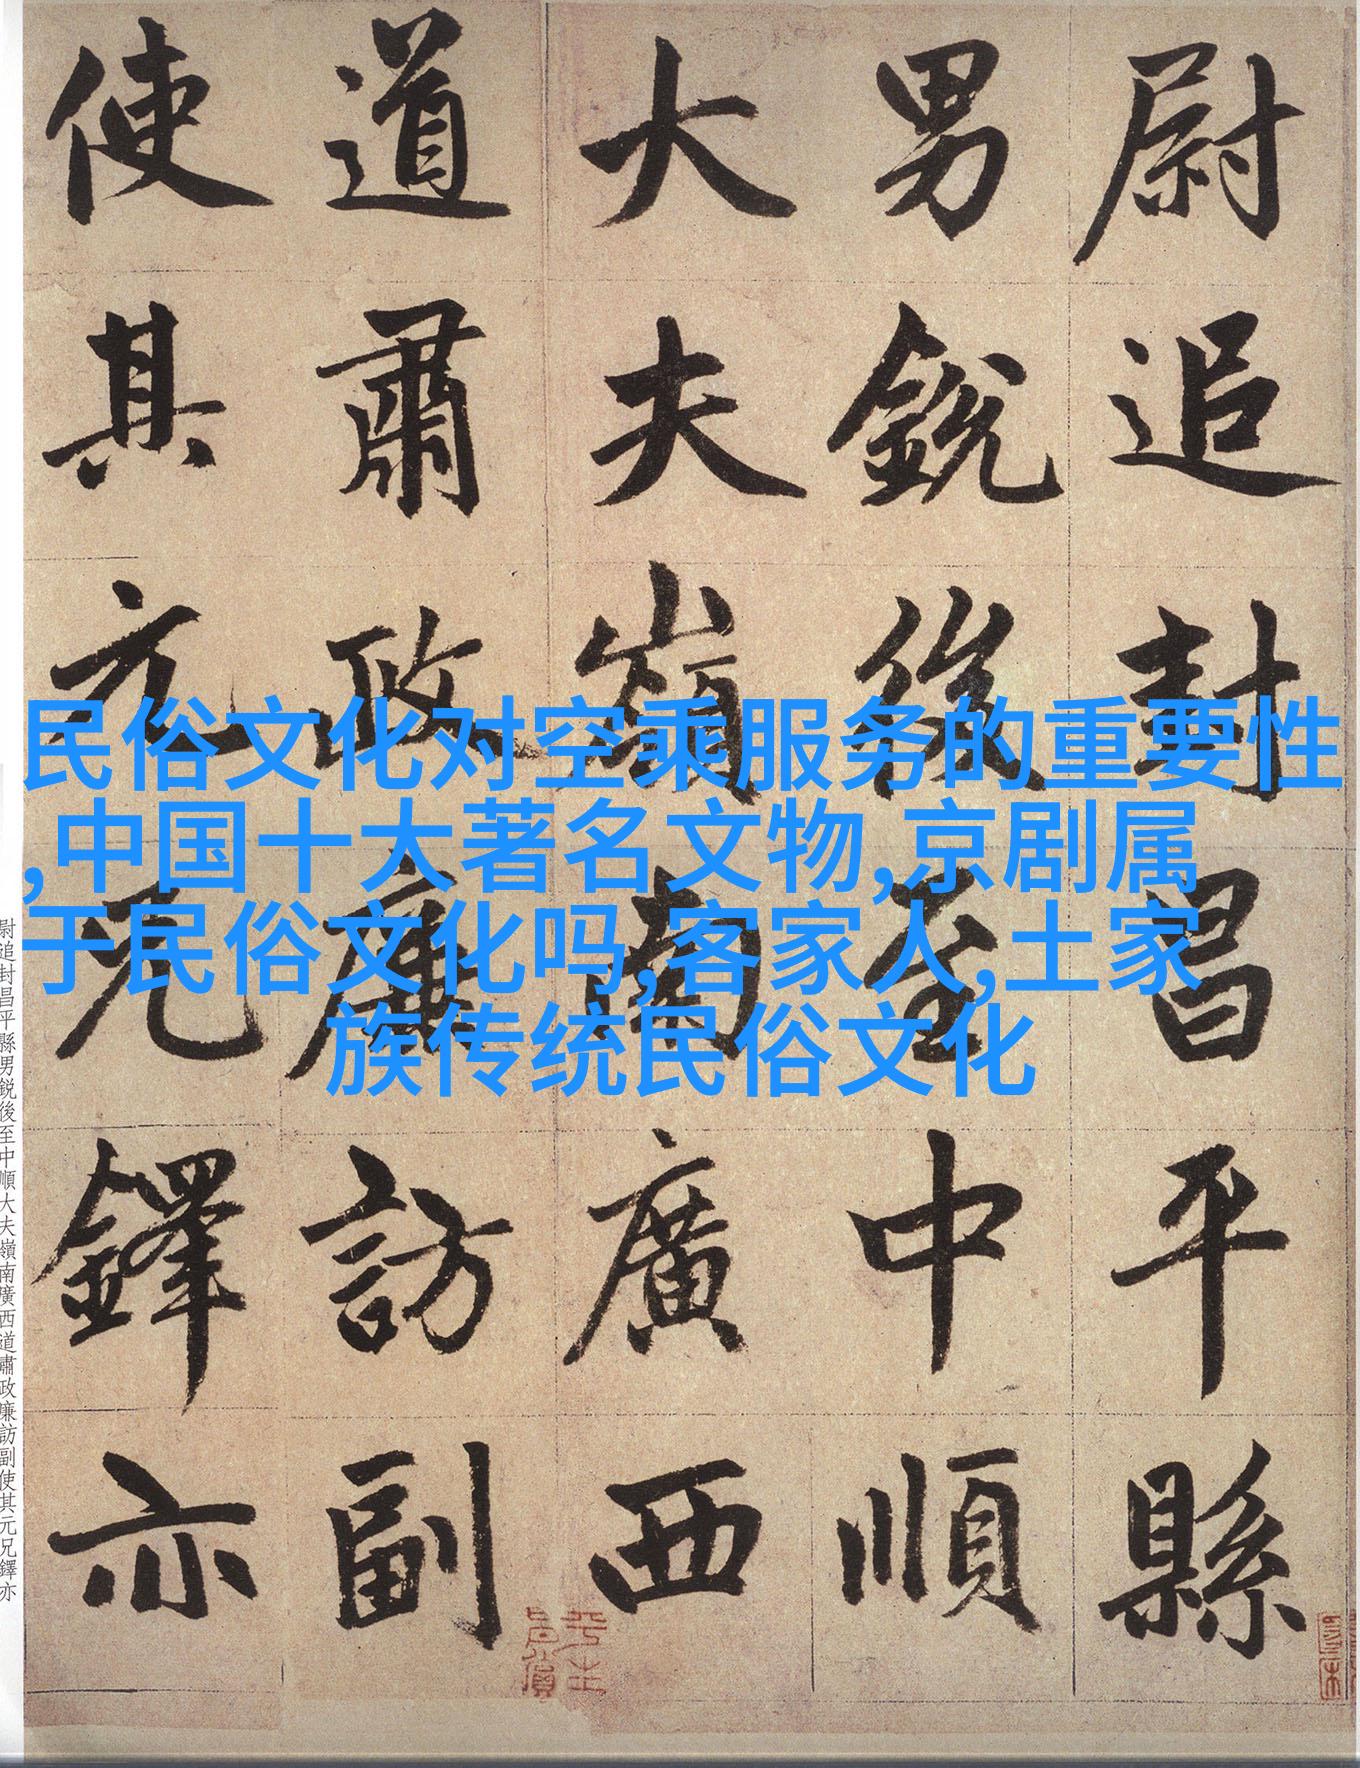 民俗文化对空乘服务的重要性
,中国十大著名文物,京剧属
于民俗文化吗,客家人,土家
族传统民俗文化
尉追封昌平縣
男銳後至中順
大夫嶺南廣西
道肅政廉訪副
使其元兄鐸亦
尉追封昌平縣男銳後至中順大夫嶺南廣西道肅政廉訪副使其元兄鐸亦